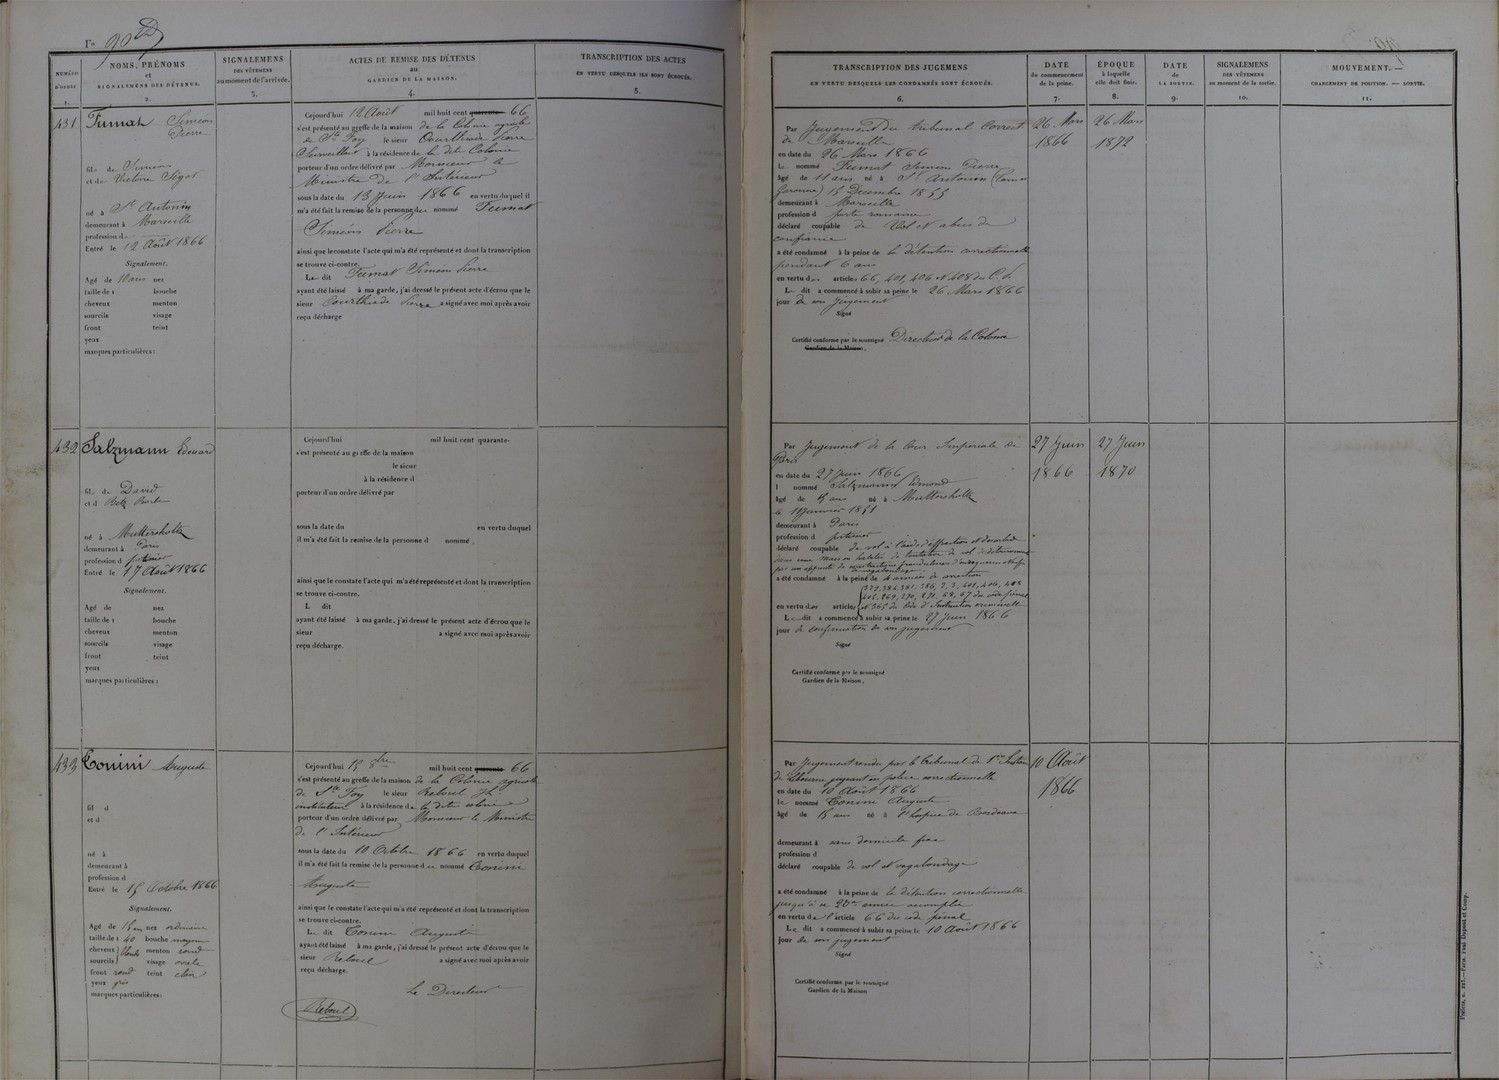 NUMÉRO
D'ORDRE
1.
NOMS, PRÉNOMS
et
SIGNALEMENS DES DÉTENUS.
2.
SIGNALEMENS
DES VÊTEMENS
au moment de l'arrivée.
3.
ACTES DE REMISE DES DÉTENUS
au
GARDIEN DE LA MAISON.
4.
TRANSCRIPTION DES ACTES
EN VERTU DESQUELS ILS SONT ÉCROUÉS.
5.
431
Fumat Siméon
Pierre
fil de Siméon
et de Victoire
né à St Antonin
demeurant à Marseille
profession d
Entré le 12 Août 1866
Signalement.
Agé de ans nez
taille de 1 bouche
cheveux menton
sourcils visage
front teint
yeux
marques particulières :
Cejourd'hui 12 Août mil huit cent quarante 66
s'est présenté au greffe de la maison de la Colonie agricole
de Ste Foy le sieur Courthiade Pierre
Surveillant à la résidence de la dite Colonie
porteur d'un ordre délivré par Monsieur le
Ministre de l'Intérieur
sous la date du 13 Juin 1866 en vertu duquel il
m'a été fait la remise de la personne du nommé Fumat
Siméon Pierre
ainsi que le constate l'acte qui m'a été représenté et dont la transcription
se trouve ci-contre.
Le dit Fumat Siméon Pierre
ayant été laissé à ma garde, j'ai dressé le présent acte d'écrou que le
sieur Courthiade Pierre a signé avec moi après avoir
reçu décharge
432
Salzmann Edouard
fil de David
et d
né à Muttersholtz
demeurant à Paris
profession d
Entré le 17 Août 1866
Signalement.
Agé de nez
taille de 1 bouche
cheveux menton
sourcils visage
front teint
yeux
marques particulières :
Cejourd'hui mil huit cent quarante-
s'est présenté au greffe de la maison
le sieur
à la résidence d
porteur d'un ordre délivré par
sous la date du en vertu duquel
il m'a été fait la remise de la personne d nommé
ainsi que le constate l'acte qui m'a été représenté et dont la transcription
se trouve ci-contre.
L dit
ayant été laissé à ma garde, j'ai dressé le présent acte d'écrou que le
sieur a signé avec moi après avoir
reçu décharge.
433
Conini Auguste
fil d
et d
né à
demeurant à
profession d
Entré le 15 Octobre 1866
Signalement.
Agé de 15 ans nez ordinaire
taille de 1 40 bouche moyenne
cheveux menton rond
sourcils visage ovale
front rond teint clair
yeux gris
marques particulières :
Cejourd'hui 15 8bre mil huit cent quarante 66
s'est présenté au greffe de la maison de la Colonie agricole
de Ste Foy le sieur Reboul
instituteur à la résidence de la dite colonie
porteur d'un ordre délivré par Monsieur le Ministre
de l'Intérieur
sous la date du 10 Octobre 1866 en vertu duquel
il m'a été fait la remise de la personne du nommé Conini
Auguste
ainsi que le constate l'acte qui m'a été représenté et dont la transcription
se trouve ci-contre.
Le dit Conini Auguste
ayant été laissé à ma garde, j'ai dressé le présent acte d'écrou que le
sieur Reboul a signé avec moi après avoir
reçu décharge.
Le Directeur
Reboul
TRANSCRIPTION DES JUGEMENS
EN VERTU DESQUELS LES CONDAMNÉS SONT ÉCROUÉS.
6.
DATE
du commencement
de la peine.
7.
ÉPOQUE
à laquelle
elle doit finir.
8.
DATE
de
LA SORTIE.
9.
SIGNALEMENS
DES VÊTEMENS
au moment de la sortie.
10.
MOUVEMENT. —
CHANGEMENT DE POSITION. — SORTIE.
11.
Par Jugement du tribunal Correct
de Marseille
en date du 26 Mars 1866
Le nommé Fumat Siméon Pierre
âgé de 11 ans né à St Antonin (Tarn et
Garonne) 15 Décembre 1855
demeurant à Marseille
profession d porte romaine
déclaré coupable de Vol et abus de
confiance
a été condamné à la peine de la détention correctionnelle
pendant 6 ans
en vertu des articles 66, 401, 406 et 408 du C. P.
Le dit a commencé à subir sa peine le 26 Mars 1866
jour de son jugement
Signé
Certifié conforme par le soussigné Directeur de la Colonie
Gardien de la Maison.
26 Mars
1866
26 Mars
1872
Par Jugement de la Cour Impériale de
Paris
en date du 27 Juin 1866
l nommé Salzmann Edmond
âgé de 15 ans né à Muttersholtz
le 1851
demeurant à Paris
profession d
déclaré coupable de vol à l'aide d'effraction et d'escalade
dans une maison habitée de tentative de vol
a été condamné à la peine de 4 années de correction
en vertu des articles et 365 du Code d'Instruction criminelle
Le dit a commencé à subir sa peine le 27 Juin 1866
jour de confirmation de son jugement
Signé
Certifié conforme par le soussigné
Gardien de la Maison.
27 Juin
1866
27 Juin
1870
Par Jugement rendu par le Tribunal de 1ère Instance
de Libourne jugeant en police correctionnelle
en date du 10 Août 1866
le nommé Conini Auguste
âgé de 15 ans né à l'hospice de Bordeaux
demeurant à sans domicile fixe
profession d
déclaré coupable de vol et vagabondage
a été condamné à la peine de la détention correctionnelle
jusqu'à sa 20me année accomplie
en vertu de l'article 66 du code pénal
Le dit a commencé à subir sa peine le 10 Août 1866
jour de son jugement
Signé
Certifié conforme par le soussigné
Gardien de la Maison
10 Août
1866